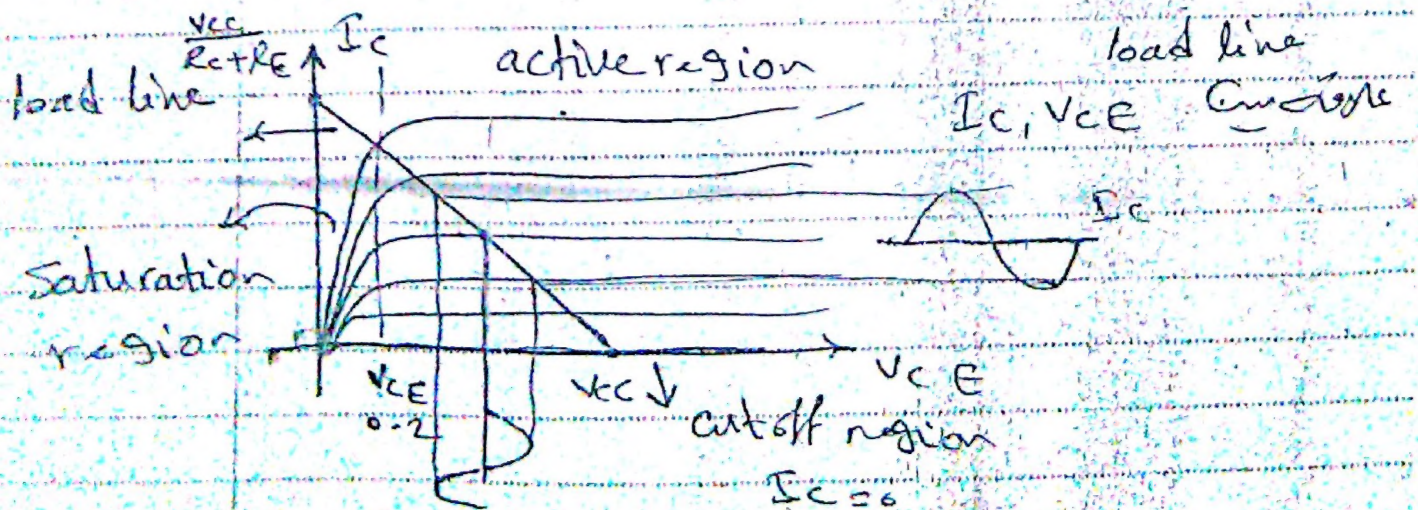 VCC
RC+RE
IC
load line
active region
load line
IC, VCE
IC
Saturation
region
VCE
0.2
VCC
VCE
cutoff region
IC=0